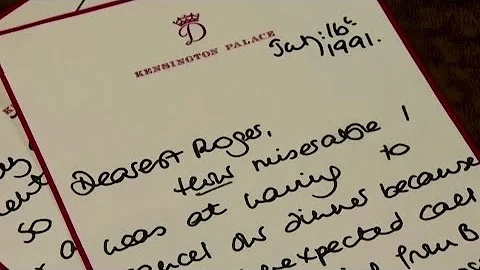 D
KENSINGTON PALACE
July: 16th
1991.
Dearest Roger,
How miserable I
was at having to
cancel our dinner because
unexpected call
from B
so